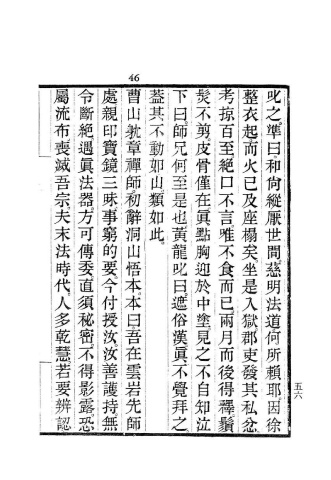 46
叱之。準曰和尚縱厭世間慈明法道何所賴耶。因徐
整衣起而火已及座榻矣。坐是入獄郡吏發其私忿
考掠百至絕口不言唯不食而已。兩月而後得釋鬚
髮不剪皮骨僅在。眞點胸迎於中塗見之不自知泣
下曰。師兄何至是也。黃龍叱曰。遮俗漢。眞不覺拜之
蓋其不動如山類如此。
曹山耽章禪師。初辭洞山悟本。本曰。吾在雲岩先師
處親印寶鏡三昧事窮的要今付授汝。汝善護持無
令斷絕。遇眞法器。方可傳委直須秘密。不得影露恐
屬流布喪滅吾宗夫末法時代人多乾慧若要辨認
五六